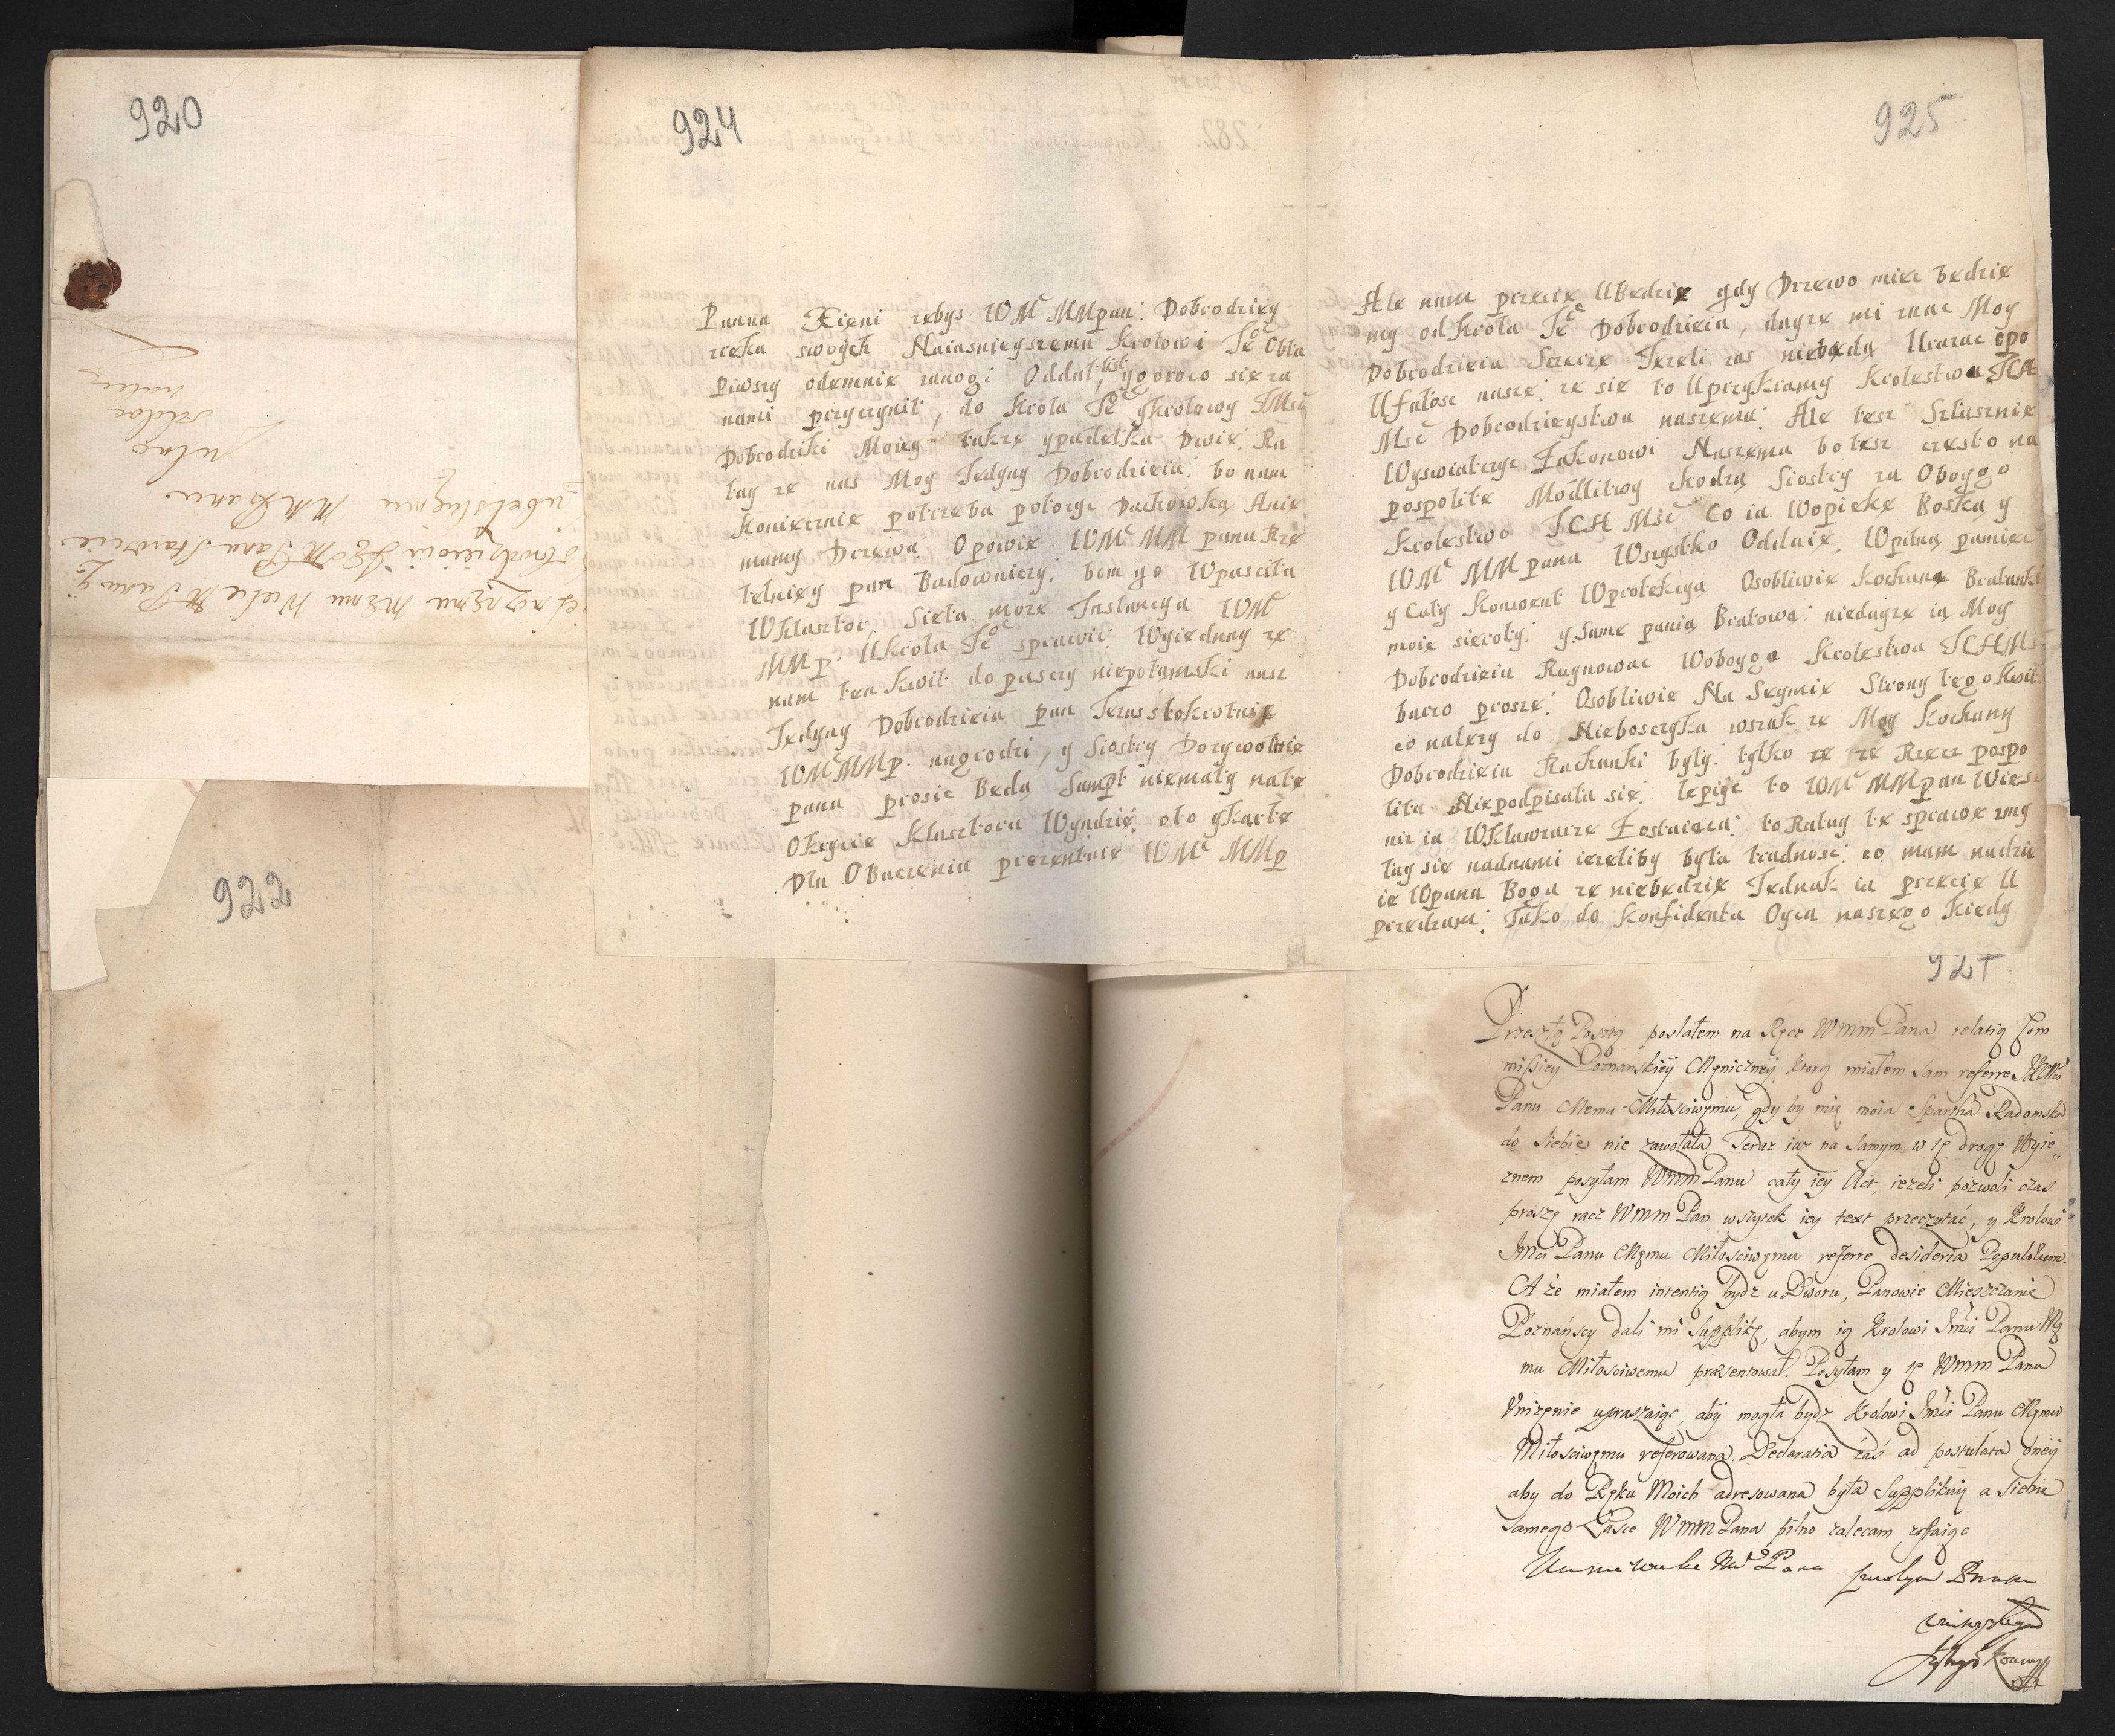 920
924
Panna Xieni zebys WMc MMpan: Dobrodziey
rzeka swoych Naiasnieyszemu Krolowi Je Obla
piwszy odemnie zanogi Oddał list ygoroco sie za
nami przyczynił, do Krola Je ykrolowy JMsci
Dobrodziki Moiey takze ypudełka Dwie: Ra
tuy ze nas Moy Jedyny Dobrodzieiu: bo nam
koniecznie potrzeba połozyc Dachowką Anie
mamy Drzewa: Opowie WMc MM pana Rze
telniey pan Budowniczy: bom go Wpusciła
WKlasztor, Sieła moze Instancya WMc
MMp: UKrola Je sprawic: Wyiednay ze
nam ten kwit do puszczy niepołamski nasz
Jedyny Dobrodzieiu pan Jezus stokrotnie
WMc MMp: nagrodzi, y Siostry Dozywotnie
pana prosic Będą Sumpt niemały nate
Okrycie Klasztoru Wyndzie: oto ykarte
Dla Obaczenia prezentuie WMc MMp
925
Ale nam przecie UBędzie gdy Drzewo miec będzie
my od Krola Je Dobrodzieia, dayze mi znac Moy
Dobrodzieiu Szczerze Jezeli zas niebędą Urazac epo
Ufałosc nasze: ze sie to Uprzykramy Krolestwu ICH
Msc Dobrodzieystwa naszemu: Ale tesz Szłusznie
Wyswiatczyc Zakonowi Naszemu bo tesz często na
pospolite Modlitwy chodzą Siostry za Oboygo
Krolestwo ICH Msc Co ia Wopiekę Boską y
WMc MMpana Wszystko Oddaie, Wpilną pamiec
y Cały Konwent Wprotekcyą Osobliwie Kochane Bratanki
moie sieroty: y Same panią Bratową: niedayze ią Moy
Dobrodzieiu Ruynowac Woboygo Krolestwa ICHMs
barzo prosze: Osobliwie Na Seymie Strony tego kwit
co nalezy do Nieboszczyka wszak ze Moy Kochany
Dobrodzieiu Rachunki były: tylko ze ze Rzecz pospo
lita Niepodpisała sie: lepiyc to WMc MMpan Wiesz
niz ia WKlawzurze Zostaiąca: to Ratuy te sprawe zmy
łuy sie nadnami iezeliby była trudnosc: co mam nadzie
ie Wpanu Bogu ze niebędzie Jednak ia przecie U
przedzam: Jako do konfidenta Oyca naszego kiedy
922
927
Przeszłą Posztą posłałem na Ręce WMM Pana relatią Com
missiey Poznańskiey Męniczney, ktorą miałem sam referre
Panu Memu Miłosciwęmu, gdy by mię moia Spartha Radomska
do siebie nie zawołała Teraz iuz na samym w tę drogę Wyie„
znem posyłam WMM Panu cały iey Act, iezeli pozwoli czas
proszę racz WMM Pan wszytek iey text przeczytać, y Krolowi
Jmci Panu Męmu Miłosciwęmu referre desideria Populorum.
A że miałem intentią bydz u Dworu, Panowie Mieszczanie
Poznańscy dali mi Supplikę, abym ią Krolowi Jmci Panu Mę
mu Miłosciwemu præsentował. Posyłam y tę WMM Panu
Vniżęnie upraszaiąc, aby mogła bydz Krolowi Jmci Panu Męmu
Miłosciwęmu referowana. Declaratia zaś ad postulata oney
aby do Ręku Moich adresowana była Supplikuię a siebie
samego Łasce WMM Pana pilno zalecam zostaiąc